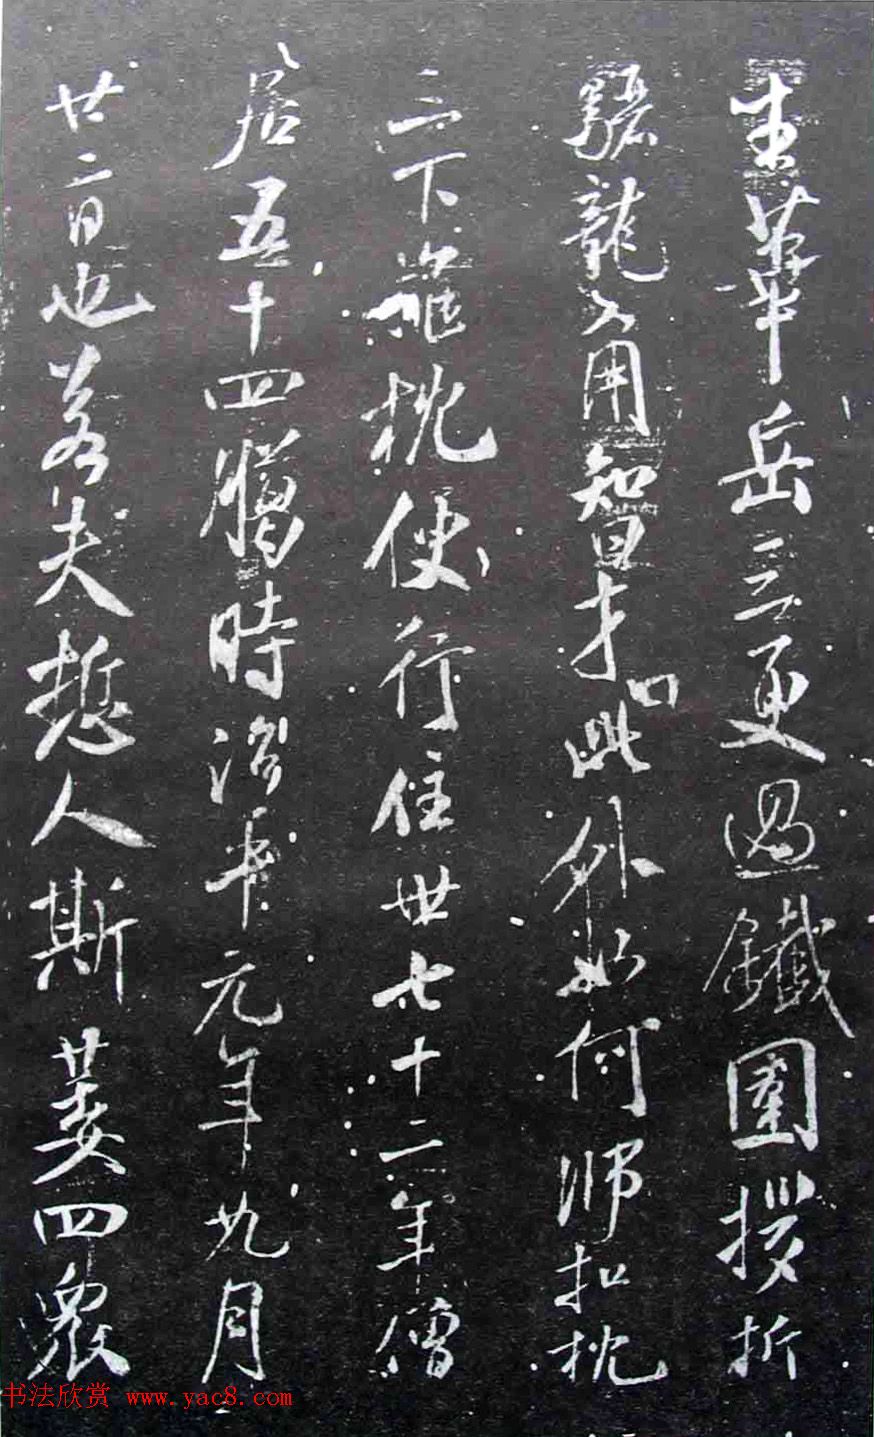 華岳三更過鐵圍拶折
驪龍角智才曰此外如何師扣枕
三下推枕便行住世七十二年僧
居五十四臈時治平元年九月
廿二日也若夫悊人斯萎四衆
书法欣赏 www.yac8.com